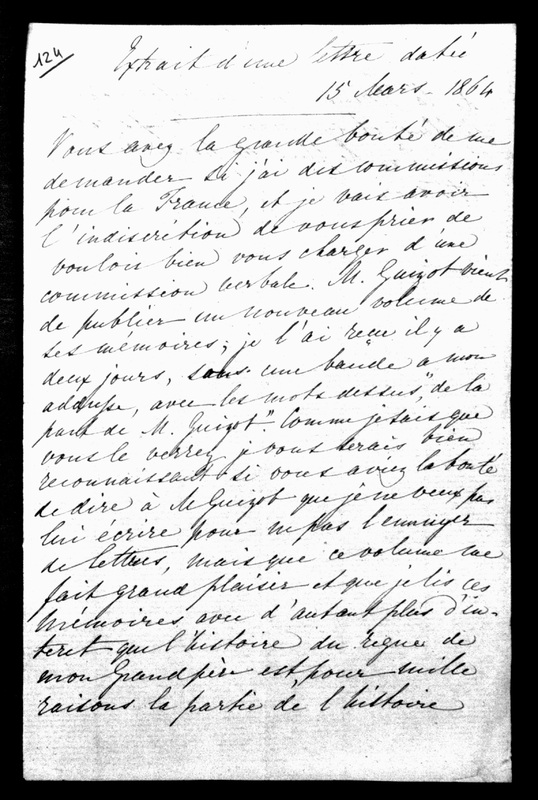 124
Extrait d'une lettre datée
15 Mars - 1864
Vous avez la grande bonté de me
demander si j'ai des commissions
pour la France, et je vais avoir
l'indiscrétion de vous prier de
vouloir bien vous charger d'une
commission verbale. M. Guizot vient
de publier un nouveau volume de
ses mémoires; je l'ai reçu il y a
deux jours, sous une bande à mon
addresse, avec les mots dessus, "de la
part de M. Guizot". Comme je sais que
vous le verrez je vous serais bien
reconnaissant si vous aviez la bonté
de dire à M Guizot que je ne veux pas
lui écrire pour ne pas l'ennuyer
de lettres, mais que ce volume me
fait grand plaisir et que je lis ces
mémoires avec d'autant plus d'in-
teret que l'histoire du règne de
mon Grand père est, pour mille
raisons la partie de l'histoire